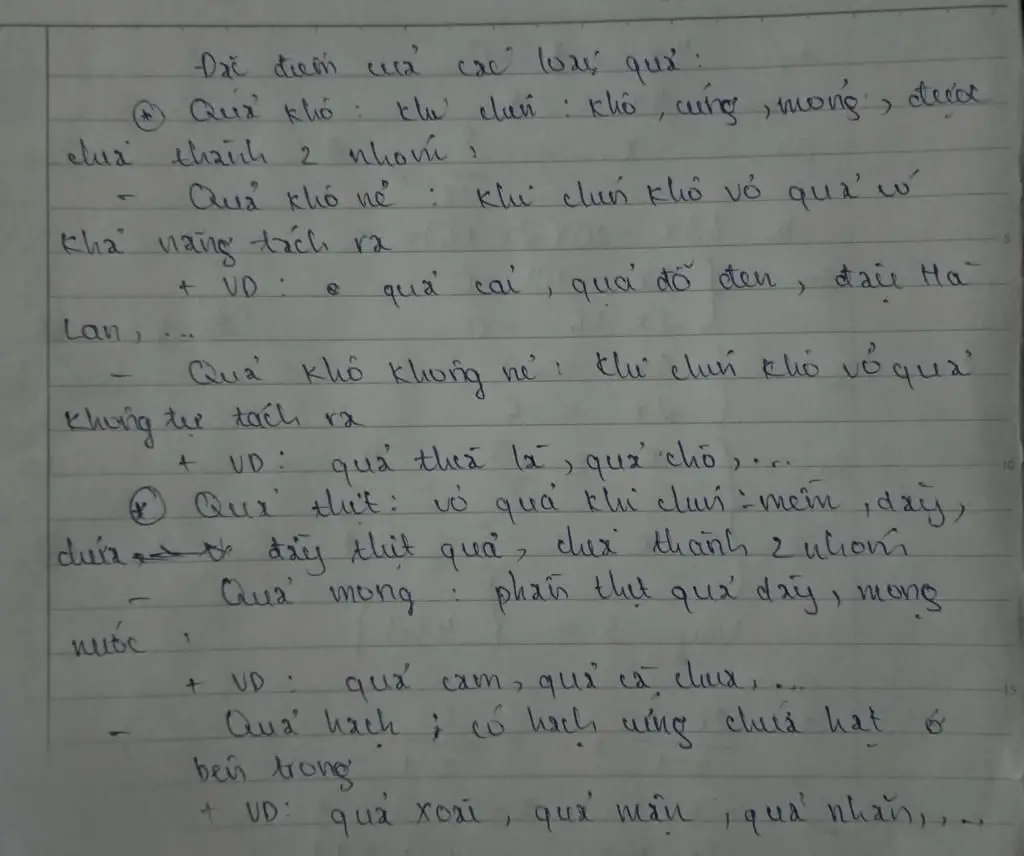 Đặc điểm của các loại quả:
* Quả khô: khi chín: khô, cứng, mỏng, được
chia thành 2 nhóm:
- Quả khô nẻ: khi chín khô vỏ quả có
khả năng tách ra
+ VD: quả cải, quả đỗ đen, đậu Hà
Lan, ...
- Quả khô không nẻ: khi chín khô vỏ quả
không tự tách ra
+ VD: quả thìa là, quả chò, ...
* Quả thịt: vỏ quả khi chín: mềm, dày,
chứa đầy thịt quả, chia thành 2 nhóm
- Quả mọng: phần thịt quả dày, mọng
nước:
+ VD: quả cam, quả cà chua, ...
- Quả hạch: có hạch cứng chứa hạt ở
bên trong
+ VD: quả xoài, quả mận, quả nhãn, ...